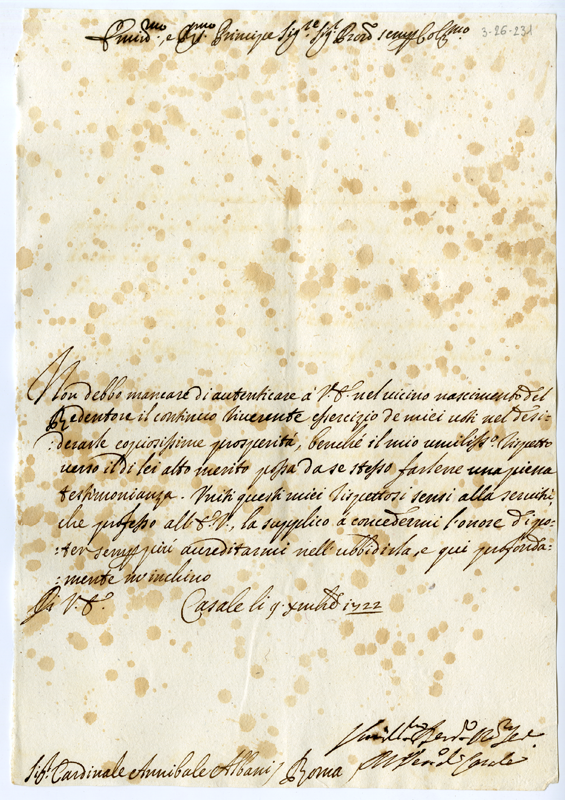 Emin.mo, e Rev.mo Principe Sig.re Sig.r P.ron sempre Col.mo
3-26-231
Non debbo mancare di autenticare à V. E. nel vicino nascimento del
Redentore il continuo riverente essercizio de miei voti nel desi-
:derarle copiosissime prosperità, benchè il mio umiliss.o rispetto
verso il di lei alto merito possa da se stesso farlene una piena
testimonianza. Uniti questi miei rispettosi sensi alla servitù,
che professo all'E. V., la supplico a concedermi l'onore di po-
:ter sempre più accreditarmi nell'ubbidirla, e qui profonda-
:mente m'inchino
Di V. E.a Casale li 9. Xmbre 1722
Casale
Sig.r Cardinale Annibale Albani Roma